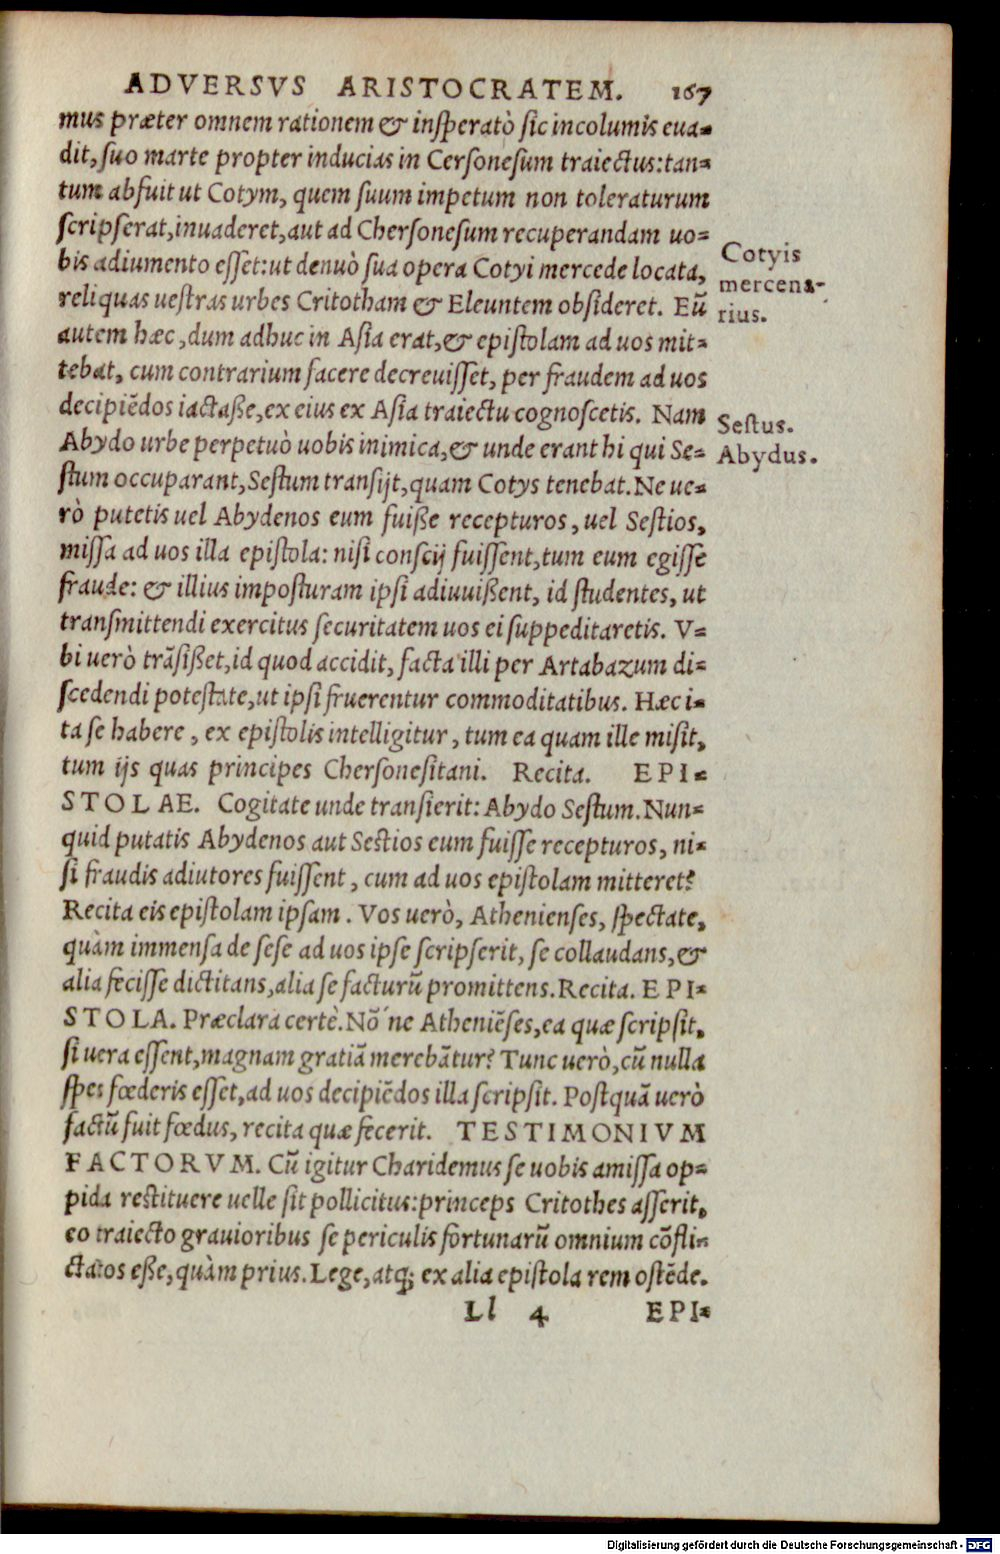 ADVERSVS ARISTOCRATEM. 167
mus præter omnem rationem & insperatò sic incolumis eua-
dit, suo marte propter inducias in Cersonesum traiectus: tan-
tum abfuit ut Cotym, quem suum impetum non toleraturum
scripserat, inuaderet, aut ad Chersonesum recuperandam uo-
bis adiumento esset: ut denuò sua opera Cotyi mercede locata,
reliquas uestras urbes Critotham & Eleuntem obsideret. Eũ
autem hæc, dum adhuc in Asia erat, & epistolam ad uos mit-
tebat, cum contrarium facere decreuisset, per fraudem ad uos
decipiẽdos iactaße, ex eius ex Asia traiectu cognoscetis. Nam
Abydo urbe perpetuò uobis inimica, & unde erant hi qui Se-
stum occuparant, Sestum transijt, quam Cotys tenebat. Ne ue-
rò putetis uel Abydenos eum fuiße recepturos, uel Sestios,
missa ad uos illa epistola: nisi conscij fuissent, tum eum egisse
fraude: & illius imposturam ipsi adiuuißent, id studentes, ut
transmittendi exercitus securitatem uos ei suppeditaretis. V-
bi uerò trãsißet, id quod accidit, facta illi per Artabazum di-
scedendi potestate, ut ipsi fruerentur commoditatibus. Hæc i-
ta se habere, ex epistolis intelligitur, tum ea quam ille misit,
tum ijs quas principes Chersonesitani. Recita. EPI-
STOLAE. Cogitate unde transierit: Abydo Sestum. Nun-
quid putatis Abydenos aut Sestios eum fuisse recepturos, ni-
si fraudis adiutores fuissent, cum ad uos epistolam mitteret?
Recita eis epistolam ipsam. Vos uerò, Athenienses, spectate,
quàm immensa de sese ad uos ipse scripserit, se collaudans, &
alia fecisse dictitans, alia se facturũ promittens. Recita. EPI-
STOLA. Præclara certè. Nõ'ne Atheniẽses, ea quæ scripsit,
si uera essent, magnam gratiã merebãtur? Tunc uerò, cũ nulla
spes fœderis esset, ad uos decipiẽdos illa scripsit. Postquã uerò
factũ fuit fœdus, recita quæ fecerit. TESTIMONIVM
FACTORVM. Cũ igitur Charidemus se uobis amissa op-
pida restituere uelle sit pollicitus: princeps Critothes asserit,
eo traiecto grauioribus se periculis fortunarũ omnium cõfli-
ctatos eße, quàm prius. Lege, atq; ex alia epistola rem ostẽde.
Ll 4 EPI-
Cotyis
mercena-
rius.
Sestus.
Abydus.
Digitalisierung gefördert durch die Deutsche Forschungsgemeinschaft - DFG